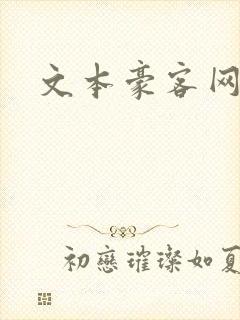 文本豪客网
初戀璀璨如夏